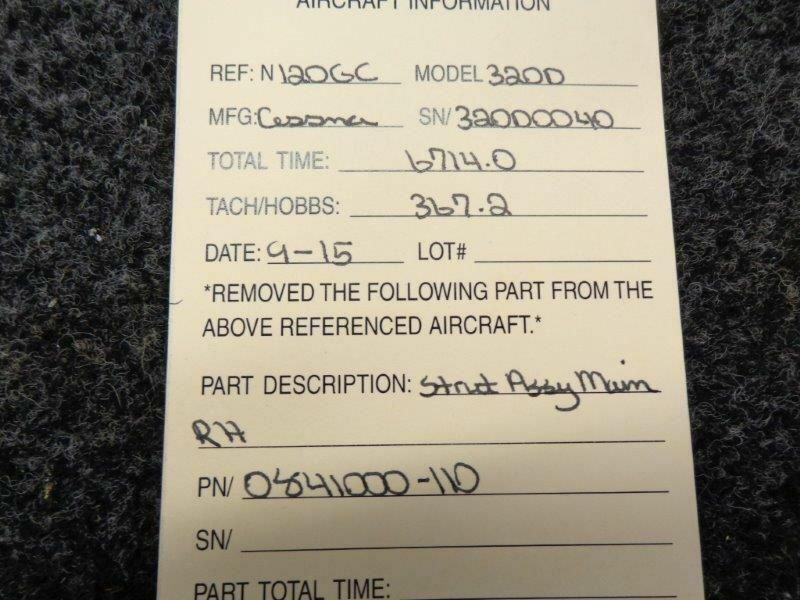 AIRCRAFT INFORMATION
REF: N 120GC MODEL 320D
MFG: Cessna SN/ 320D0040
TOTAL TIME: 6714.0
TACH/HOBBS: 367.2
DATE: 9-15 LOT#
*REMOVED THE FOLLOWING PART FROM THE
ABOVE REFERENCED AIRCRAFT.*
PART DESCRIPTION: Strut Assy Main
RH
PN/ 0841000-110
SN/
PART TOTAL TIME: